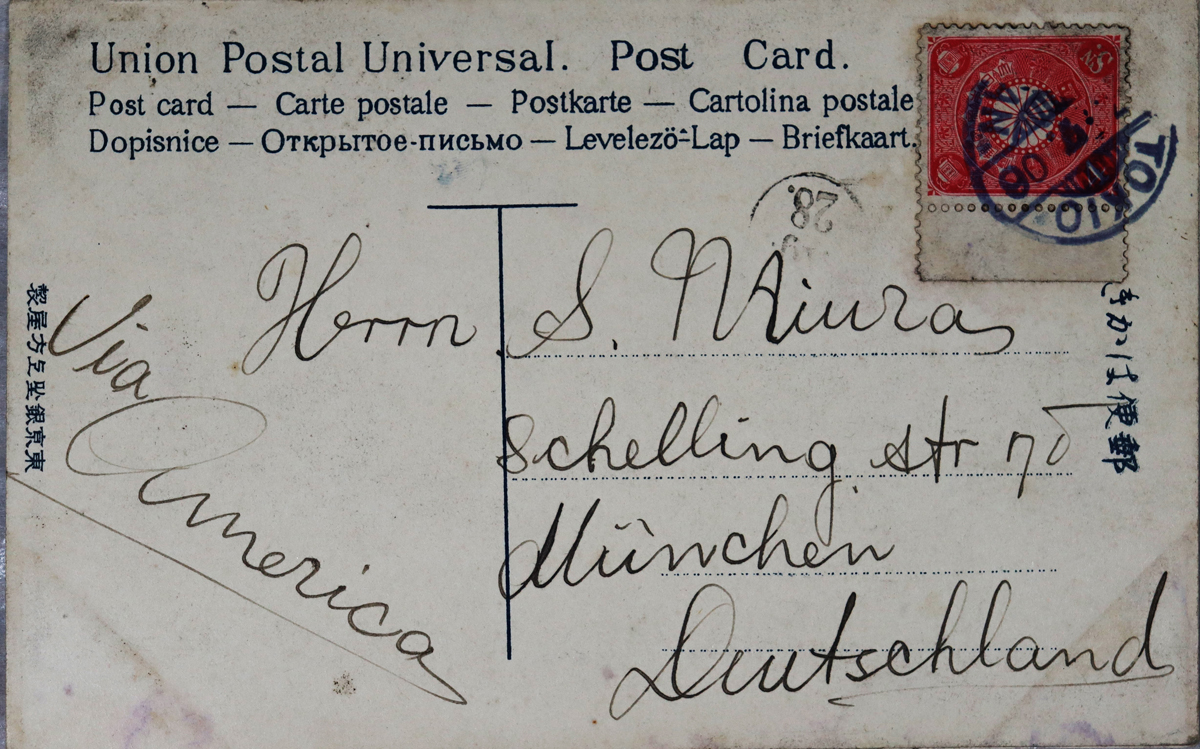 Union Postal Universal. Post Card.
Post card — Carte postale — Postkarte — Cartolina postale
Dopisnice — Открытое-письмо — Levelezö-Lap — Briefkaart.
TOKIO
JAPAN
28.
Herrn S. Miura
Schelling str
München
Deutschland
Via
America
東京銀坐上方屋製
郵便はかき